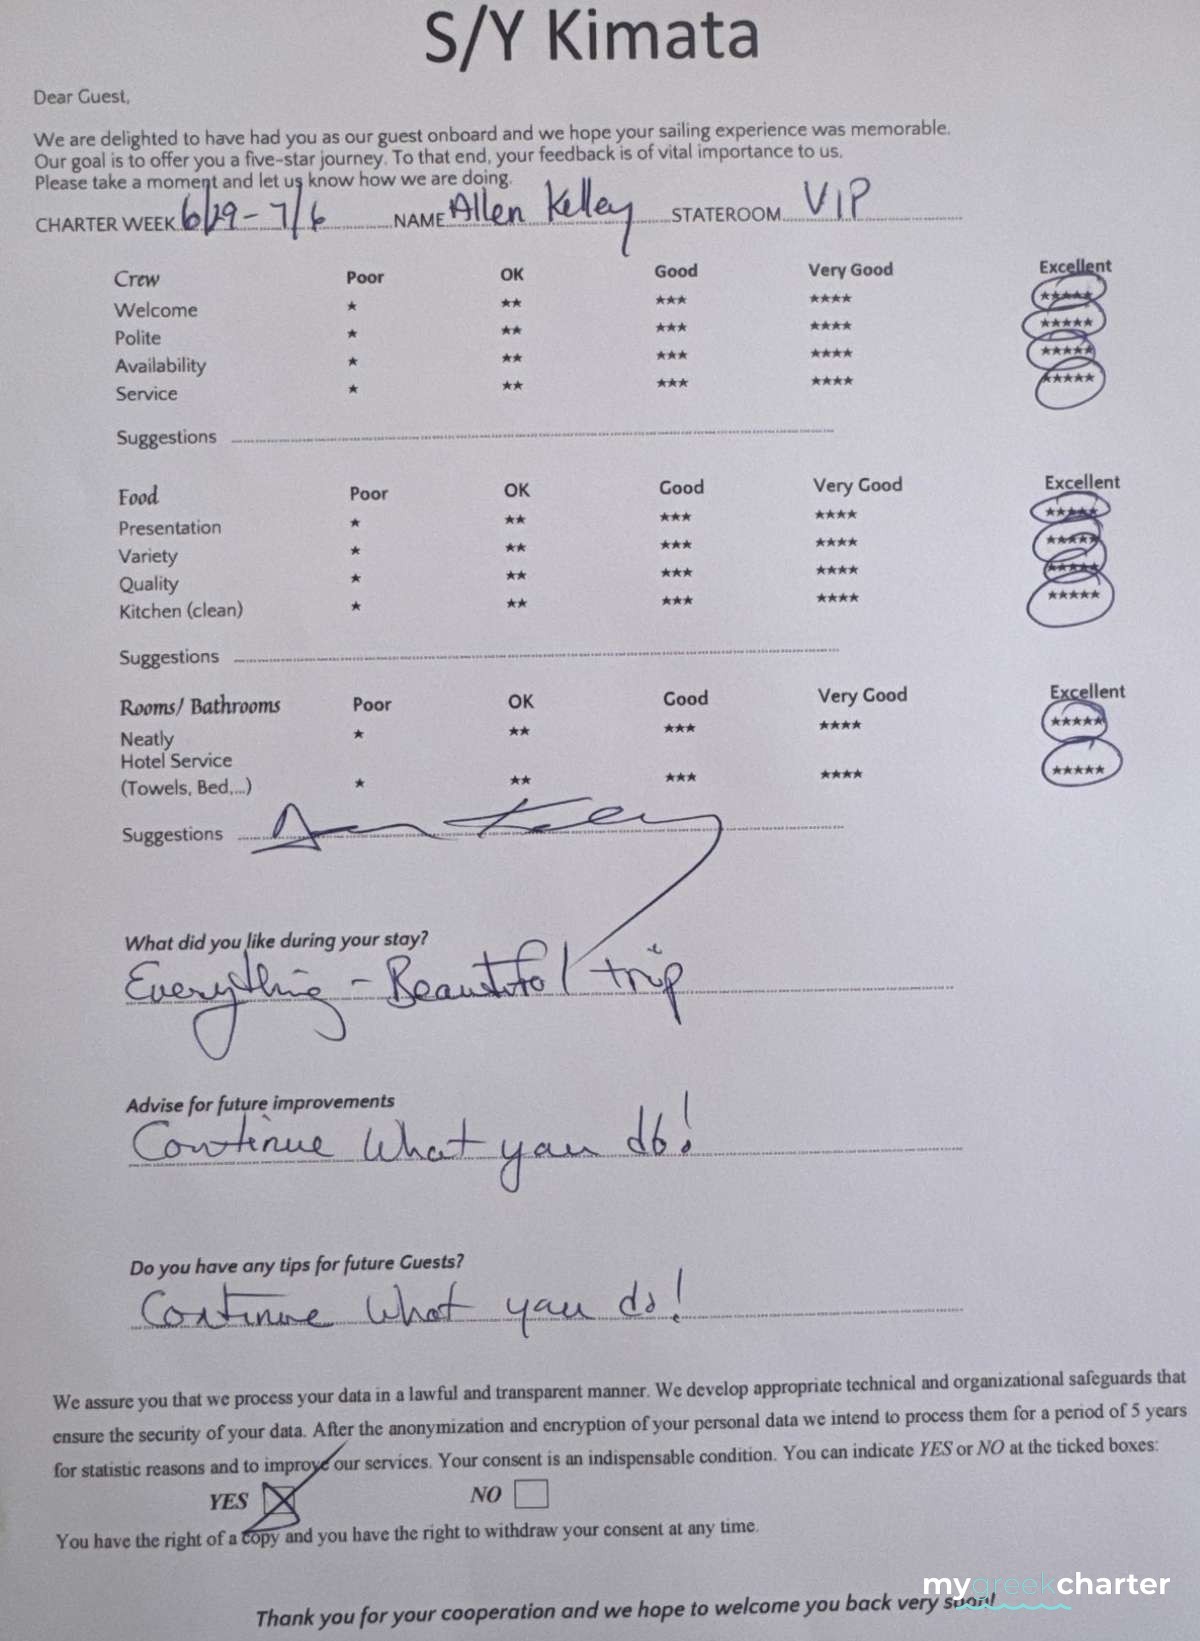 S/Y Kimata
Dear Guest,
We are delighted to have had you as our guest onboard and we hope your sailing experience was memorable.
Our goal is to offer you a five-star journey. To that end, your feedback is of vital importance to us.
Please take a moment and let us know how we are doing.
CHARTER WEEK 6/29 - 7/6 NAME Allen Kelley STATEROOM VIP
Crew Poor OK Good Very Good Excellent
Welcome ★ ★★ ★★★ ★★★★ ★★★★★
Polite ★ ★★ ★★★ ★★★★ ★★★★★
Availability ★ ★★ ★★★ ★★★★ ★★★★★
Service ★ ★★ ★★★ ★★★★ ★★★★★
Suggestions
Food Poor OK Good Very Good Excellent
Presentation ★ ★★ ★★★ ★★★★ ★★★★★
Variety ★ ★★ ★★★ ★★★★ ★★★★★
Quality ★ ★★ ★★★ ★★★★ ★★★★★
Kitchen (clean) ★ ★★ ★★★ ★★★★ ★★★★★
Suggestions
Rooms/ Bathrooms Poor OK Good Very Good Excellent
Neatly ★ ★★ ★★★ ★★★★ ★★★★★
Hotel Service
(Towels, Bed,...) ★ ★★ ★★★ ★★★★ ★★★★★
Suggestions
What did you like during your stay?
Everything - Beautiful trip
Advise for future improvements
Continue What you do!
Do you have any tips for future Guests?
Continue What you do!
We assure you that we process your data in a lawful and transparent manner. We develop appropriate technical and organizational safeguards that
ensure the security of your data. After the anonymization and encryption of your personal data we intend to process them for a period of 5 years
for statistic reasons and to improve our services. Your consent is an indispensable condition. You can indicate YES or NO at the ticked boxes:
YES NO
You have the right of a copy and you have the right to withdraw your consent at any time.
mygreekcharter
Thank you for your cooperation and we hope to welcome you back very soon!